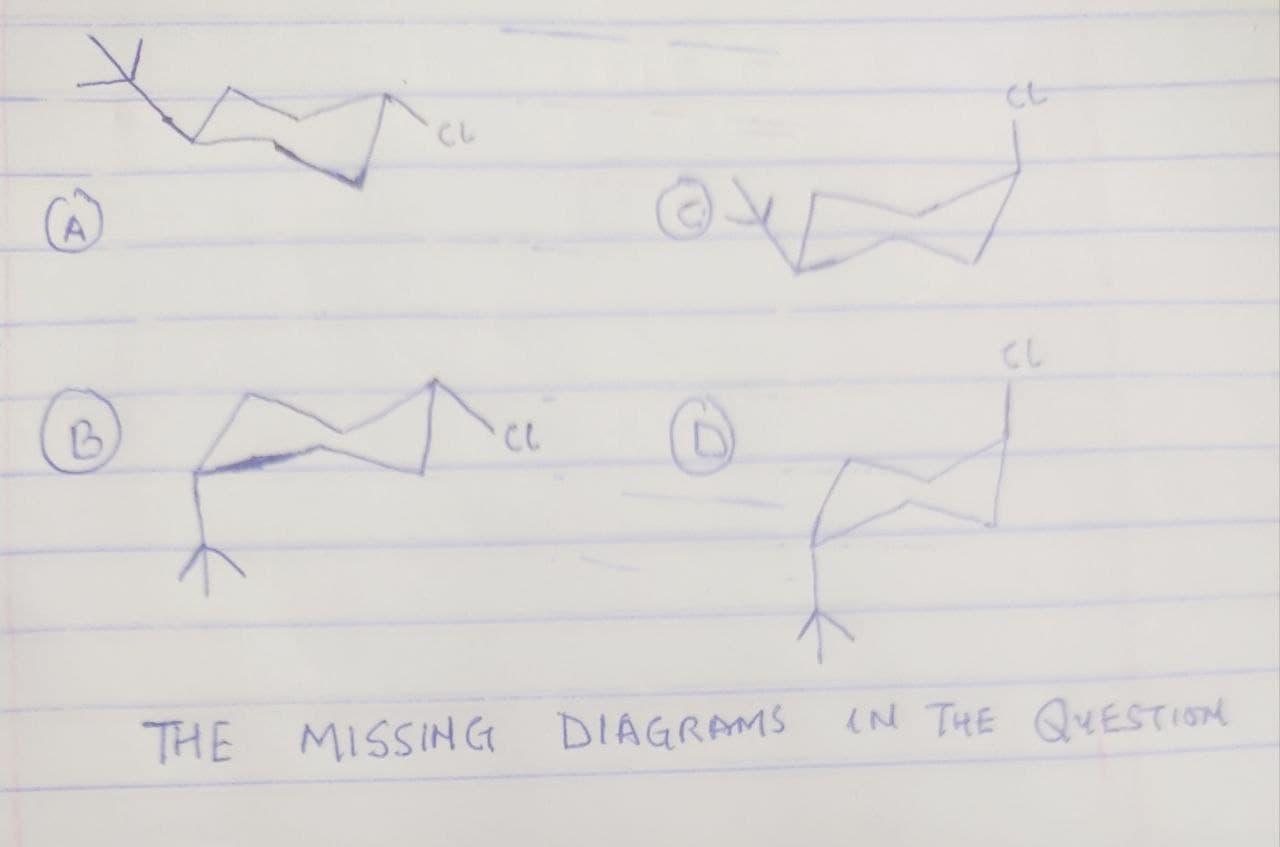 CL
CL
A
C
CL
B
CL
D
THE MISSING DIAGRAMS IN THE QUESTION